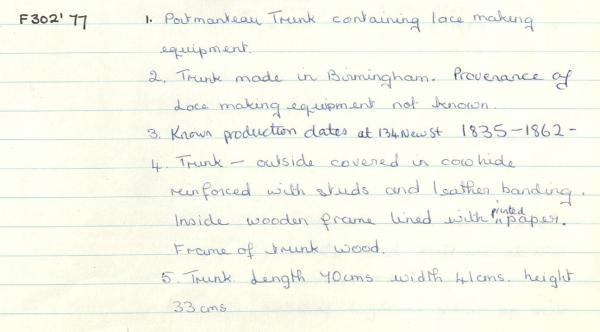 F302'77 1. Portmanteau Trunk containing lace making
equipment.
2. Trunk made in Birmingham. Provenance of
Lace making equipment not known.
3. Known production dates at 134 New St 1835-1862-
4. Trunk - outside covered in cowhide
reinforced with studs and leather banding.
Inside wooden frame lined with printed paper.
Frame of trunk wood.
5. Trunk. Length 70cms width 41cms. height
33cms